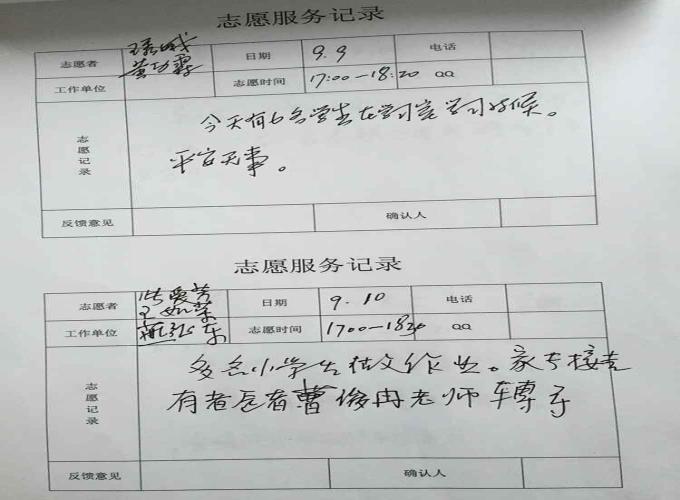 志愿服务记录
志愿者 日期 9.9 电话
工作单位 黄功霖 志愿时间 17:00—18:20 QQ
今天有6名学生在学习室学习好候。
志愿记录
平安无事。
反馈意见 确认人
志愿服务记录
志愿者 爱芳 王如荣 日期 9.10 电话
工作单位 东 志愿时间 1700—1820 QQ
多名小学生做文作业。家长接走
志愿记录
有者后有曹俊冉老师转
反馈意见 确认人